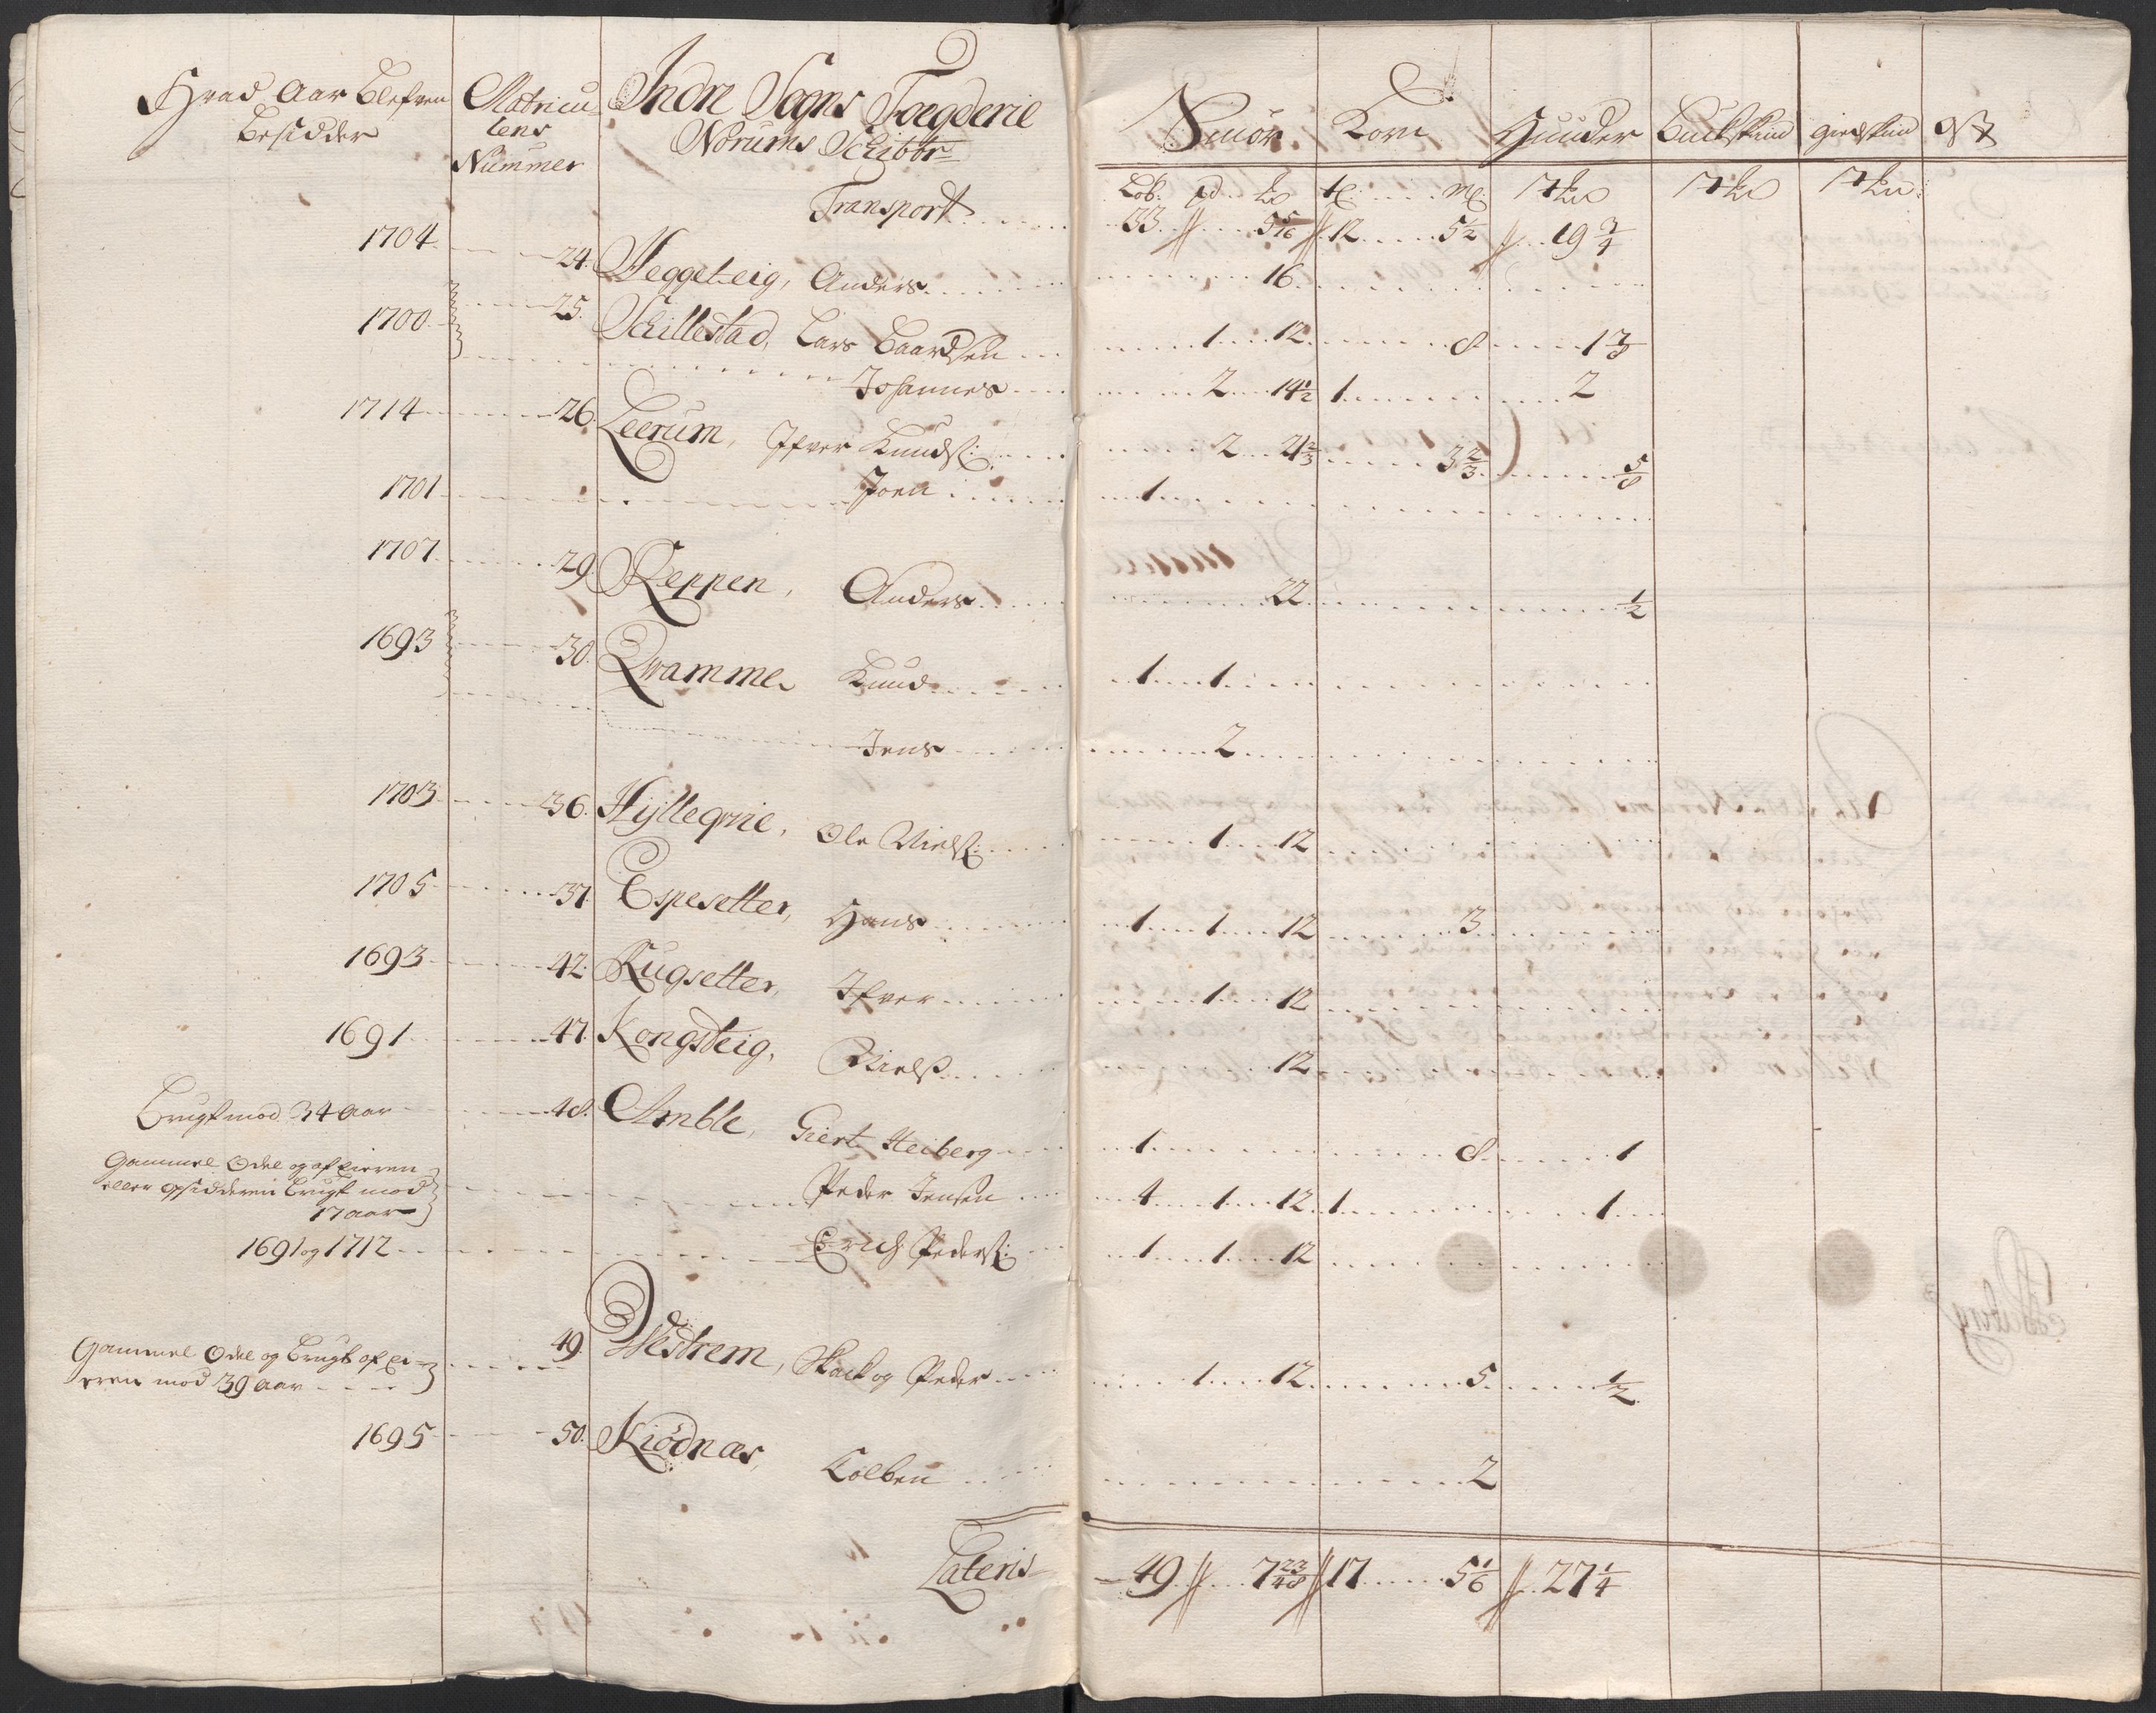 Hvad Aar Blefven Besidder | Matriculens Nummer | Indre Sogns Foegderie Norums Schibbr= | Smör | Korn | Huuder | Buckskind | giedskind | Ost
Løb. pd. | tt: mæ: | Stk: | Stk: | Stk:
Transport | 33 // 5 5/16 // | 12 5 1/2 // | 19 3/4
1704 | 24. | Heggeteig, Anders | 16
1700 | 25. | Schillestad, Lars Baardsen | 1 12 | 8 | 1 3/8
Johannes | 2 14 1/2 | 1 | 2
1714 | 26. | Leerum, Ifver Knuds: | 2 4 2/3 | 3 2/3 | 5/8
1701 | Joen | 1
1707 | 29. | Reppen, Anders | 22 | 1/2
1693 | 30. | Qvamme, Knud | 1 1
Jens | 2
1703 | 36. | Hyllegrvie, Ole Niels: | 1 12
1705 | 37. | Espesetter, Hans | 1 1 12 | 3
1693 | 42. | Rugsetter, Ifver | 1 12
1691 | 47. | Kongsteig, Niels | 12
Brugt mod 34 Aar | 48. | Amble, Giert Heiberg | 1 | 8 | 1
Gammel Odel og af Eieren
eller opsidderen Brugt mod
17 aar | Peder Jensen | 4 1 12 | 1 | 1
1691 og 1712 | Erich Peders: | 1 1 12
Gammel Odel og Brugt af Ei=
eren mod 39 Aar | 49. | Westrem, og Peder | 1 12 | 5 | 1/2
1695 | 50. | Kiödnæs, Colben | 2
Lateris | 49 // 7 23/48 // | 17 5 1/6 // | 27 1/4